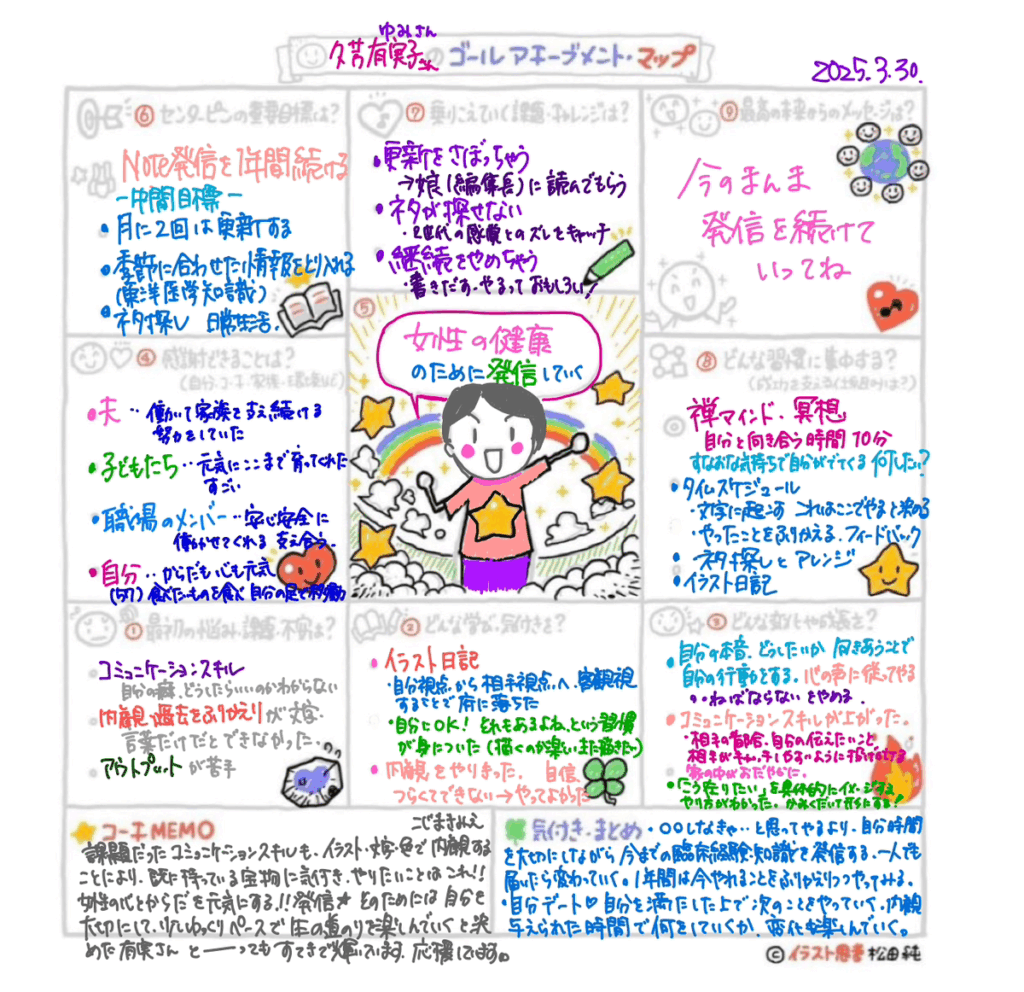 ゆみさん
久吉有実子さんのゴールアチーブメント・マップ
2025.3.30.
⑥ センターピンの重要目標は?
Note発信を1年間続ける
-中間目標-
・月に2回は更新する
・季節に合わせた情報をとり入れる
(東洋医学知識)
・ネタ探し 日常生活.
⑦ 乗りこえていく課題・チャレンジは?
・更新をさぼっちゃう
→娘(編集長)に読んでもらう
・ネタが探せない
・2世代の感覚とのズレをキャッチ
・継続をやめちゃう
・書きだす、やるって おもしろい!
⑨ 最高の未来からのメッセージは?
今のまんま
発信を続けて
いってね
④ 感謝できることは?
・夫‥働いて家族を支え続ける
努力をしていた
・子どもたち‥元気にここまで育ってくれた
すごい
・職場のメンバー‥安心安全に
働かせてくれる 支え合う.
・自分‥からだも心も元気
(57) 食べたいものを食べ 自分の足で移動
⑤
女性の健康
のために発信していく
⑧ どんな習慣に集中する?
禅マインド・冥想
自分と向き合う時間10分
すなおな気持ちで自分がでてくる 何したい?
・タイムスケジュール
・文字に起こす これはここでやると決める
・やったことをふりかえる.フィードバック
・ネタ探しとアレンジ
・イラスト日記
① 最初の悩み・課題・不安は?
・コミュニケーションスキル
自分の癖、どうしたらいいのかわからない
内観・過去をふりかえりが文字・
言葉だけだとできなかった.
アウトプットが苦手
② どんな学び・気付きを?
・イラスト日記
・自分視点から相手視点へ 客観視
することで府に落ちた
・自分にOK! それもあるよね、という習慣
が身についた(描くのが楽しい また描きたい)
・内観をやりきった. 自信
つらくてできない→やってよかった
③ どんな変化や成長を?
・自分の本音、どうしたいか 向きあうことで
自分の行動をする. 心の声に従ってやる
・〇〇ねばならないをやめる
・コミュニケーションスキルが上がった.
・相手の都合、自分の伝えたいこと
相手がキャッチしやすいように投げかける
家の中がおだやかに.
・「こう在りたい」を具体的にイメージする
やり方がわかった. かみくだいて形にする!
コーチMEMO
こじまきみえ
課題だったコミュニケーションスキルも、イラスト・文字・色で内観する
ことにより、既に持っている宝物に気付き、やりたいことはこれ!!
女性の心とからだを元気にする!!発信★そのためには 自分を
大切にして、ゆっくりペースで 生の道のりを楽しんでいくと決
めた有実さん と――ってもすてきで輝いています. 応援してます。
気付き・まとめ ・〇〇しなきゃ‥と思ってやるより、自分時間
を大切にしながら今までの臨床経験・知識を発信する.一人でも
届いたら変わっていく。1年間は今やれることをふりかえりつつやってみる.
・自分デート♡自分を満たした上で次のことをやっていく.内観
与えられた時間で何をしていくか、変化も楽しんでいく。
©イラスト思考 松田純